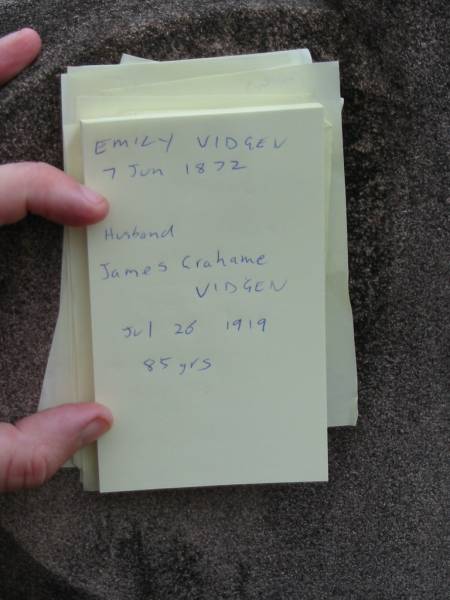 EMILY VIDGEN
7 Jun 1872
Husband
James Grahame
VIDGEN
Jul 26 1919
85 yrs